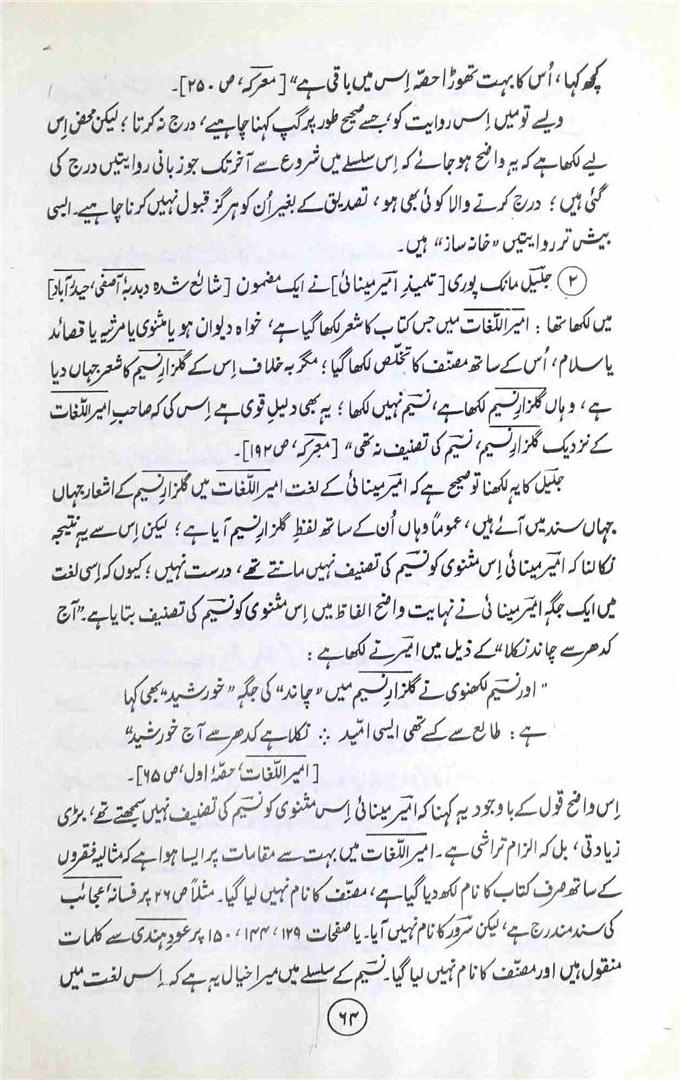 کچھ کہا، اُس کا بہت تھوڑا حصّہ اِس میں باقی ہے" [معرکہ، ص ۲۵۰]۔
ویسے تو میں اِس روایت کو، جسے صحیح طور پر گپ کہنا چاہیے، درج نہ کرتا؛ لیکن محض اِس
لیے لکھا ہے کہ یہ واضح ہو جائے کہ اِس سلسلے میں شروع سے آخر تک جو زبانی روایتیں درج کی
گئی ہیں؛ درج کرنے والا کوئی بھی ہو، تصدیق کے بغیر اُن کو ہرگز قبول نہیں کرنا چاہیے۔ ایسی
بیش تر روایتیں "خانہ ساز" ہیں۔
(۲) جلیلؔ مانک پوری [تلمیذِ امیرؔ مینائی] نے ایک مضمون [شائع شدہ دبدبۂ آصفی، حیدرآباد]
میں لکھا تھا: امیراللّغات میں جس کتاب کا شعر لکھا گیا ہے، خواہ دیوان ہو یا مثنوی یا مرثیہ یا قصائد
یا سلام، اُس کے ساتھ مصنّف کا تخلّص لکھا گیا؛ مگر بہ خلاف اِس کے گلزارِ نسیم کا شعر جہاں دیا
ہے، وہاں گلزارِ نسیم لکھا ہے، نسیمؔ نہیں لکھا؛ یہ بھی دلیلِ قوی ہے اِس کی کہ صاحبِ امیراللّغات
کے نزدیک گلزارِ نسیم، نسیمؔ کی تصنیف نہ تھی" [معرکہ، ص ۱۹۲]۔
جلیلؔ کا یہ لکھنا تو صحیح ہے کہ امیرؔ مینائی کے لغت امیراللّغات میں گلزارِ نسیم کے اشعار جہاں
جہاں سند میں آئے ہیں، عموماً وہاں اُن کے ساتھ لفظِ گلزارِ نسیم آیا ہے؛ لیکن اِس سے یہ نتیجہ
نکالنا کہ امیرؔ مینائی اِس مثنوی کو نسیمؔ کی تصنیف نہیں مانتے تھے، درست نہیں؛ کیوں کہ اِسی لغت
میں ایک جگہ امیرؔ مینائی نے نہایت واضح الفاظ میں اِس مثنوی کو نسیمؔ کی تصنیف بتایا ہے۔ "آج
کدھر سے چاند نکلا" کے ذیل میں امیرؔ نے لکھا ہے:
"اور نسیمؔ لکھنوی نے گلزارِ نسیم میں "چاند" کی جگہ "خورشید" بھی کہا
ہے: طالع سے کسے تھی ایسی امّید ∴ نکلا ہے کدھر سے آج خورشید"
[امیراللّغات، حصّۂ اوّل، ص ۶۵]۔
اِس واضح قول کے باوجود یہ کہنا کہ امیرؔ مینائی اِس مثنوی کو نسیمؔ کی تصنیف نہیں سمجھتے تھے، بڑی
زیادتی، بل کہ الزام تراشی ہے۔ امیراللّغات میں بہت سے مقامات پر ایسا ہوا ہے کہ مثالیہ فقروں
کے ساتھ صرف کتاب کا نام لکھ دیا گیا ہے، مصنّف کا نام نہیں لیا گیا۔ مثلاً ص ۲۶ پر فسانۂ عجائب
کی سند مندرج ہے، لیکن سرورؔ کا نام نہیں آیا۔ یا صفحات ۱۲۹، ۱۴۴، ۱۵۰ پر عودِ ہندی سے کلمات
منقول ہیں اور مصنّف کا نام نہیں لیا گیا۔ نسیمؔ کے سلسلے میں میرا خیال یہ ہے کہ اِس لغت میں
۶۴